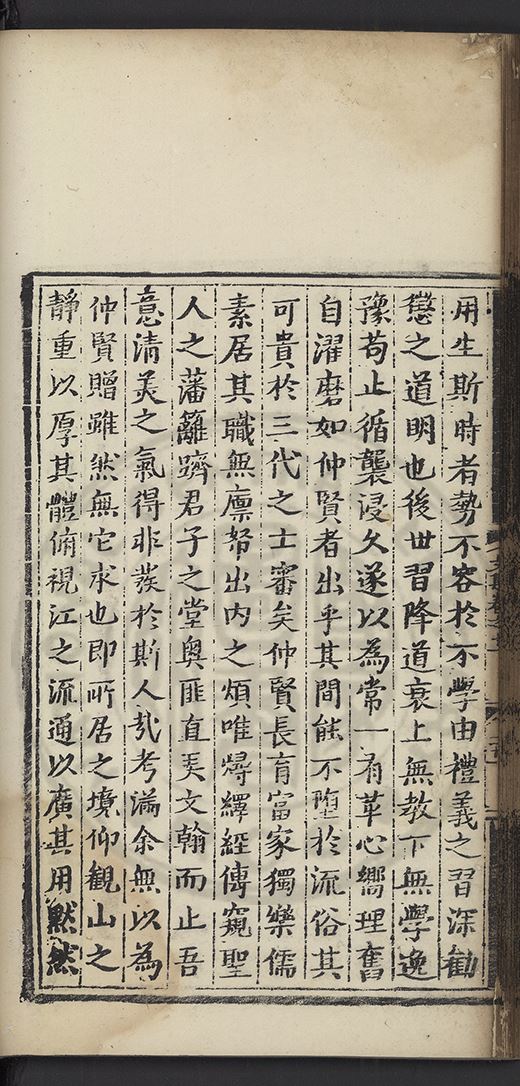 用生斯時者勢不容於不學由禮義之習深勸
懲之道明也後世習降道衰上無教下無學逸
豫苟止循襲浸久遂以為常一有革心嚮理奮
自濯磨如仲賢者出乎其間能不墮於流俗其
可貴於三代之士審矣仲賢長育富家獨樂儒
素居其職無廩帑出內之煩唯燖繹經傳窺聖
人之藩籬躋君子之堂奧匪直美文翰而止吾
意清美之氣得非發於斯人哉考滿余無以為
仲賢贈雖然無它求也即所居之境仰觀山之
靜重以厚其體俯視江之流通以廣其用默然